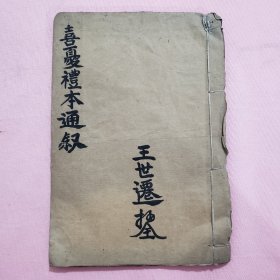 喜憂禮本通叙
王世遷